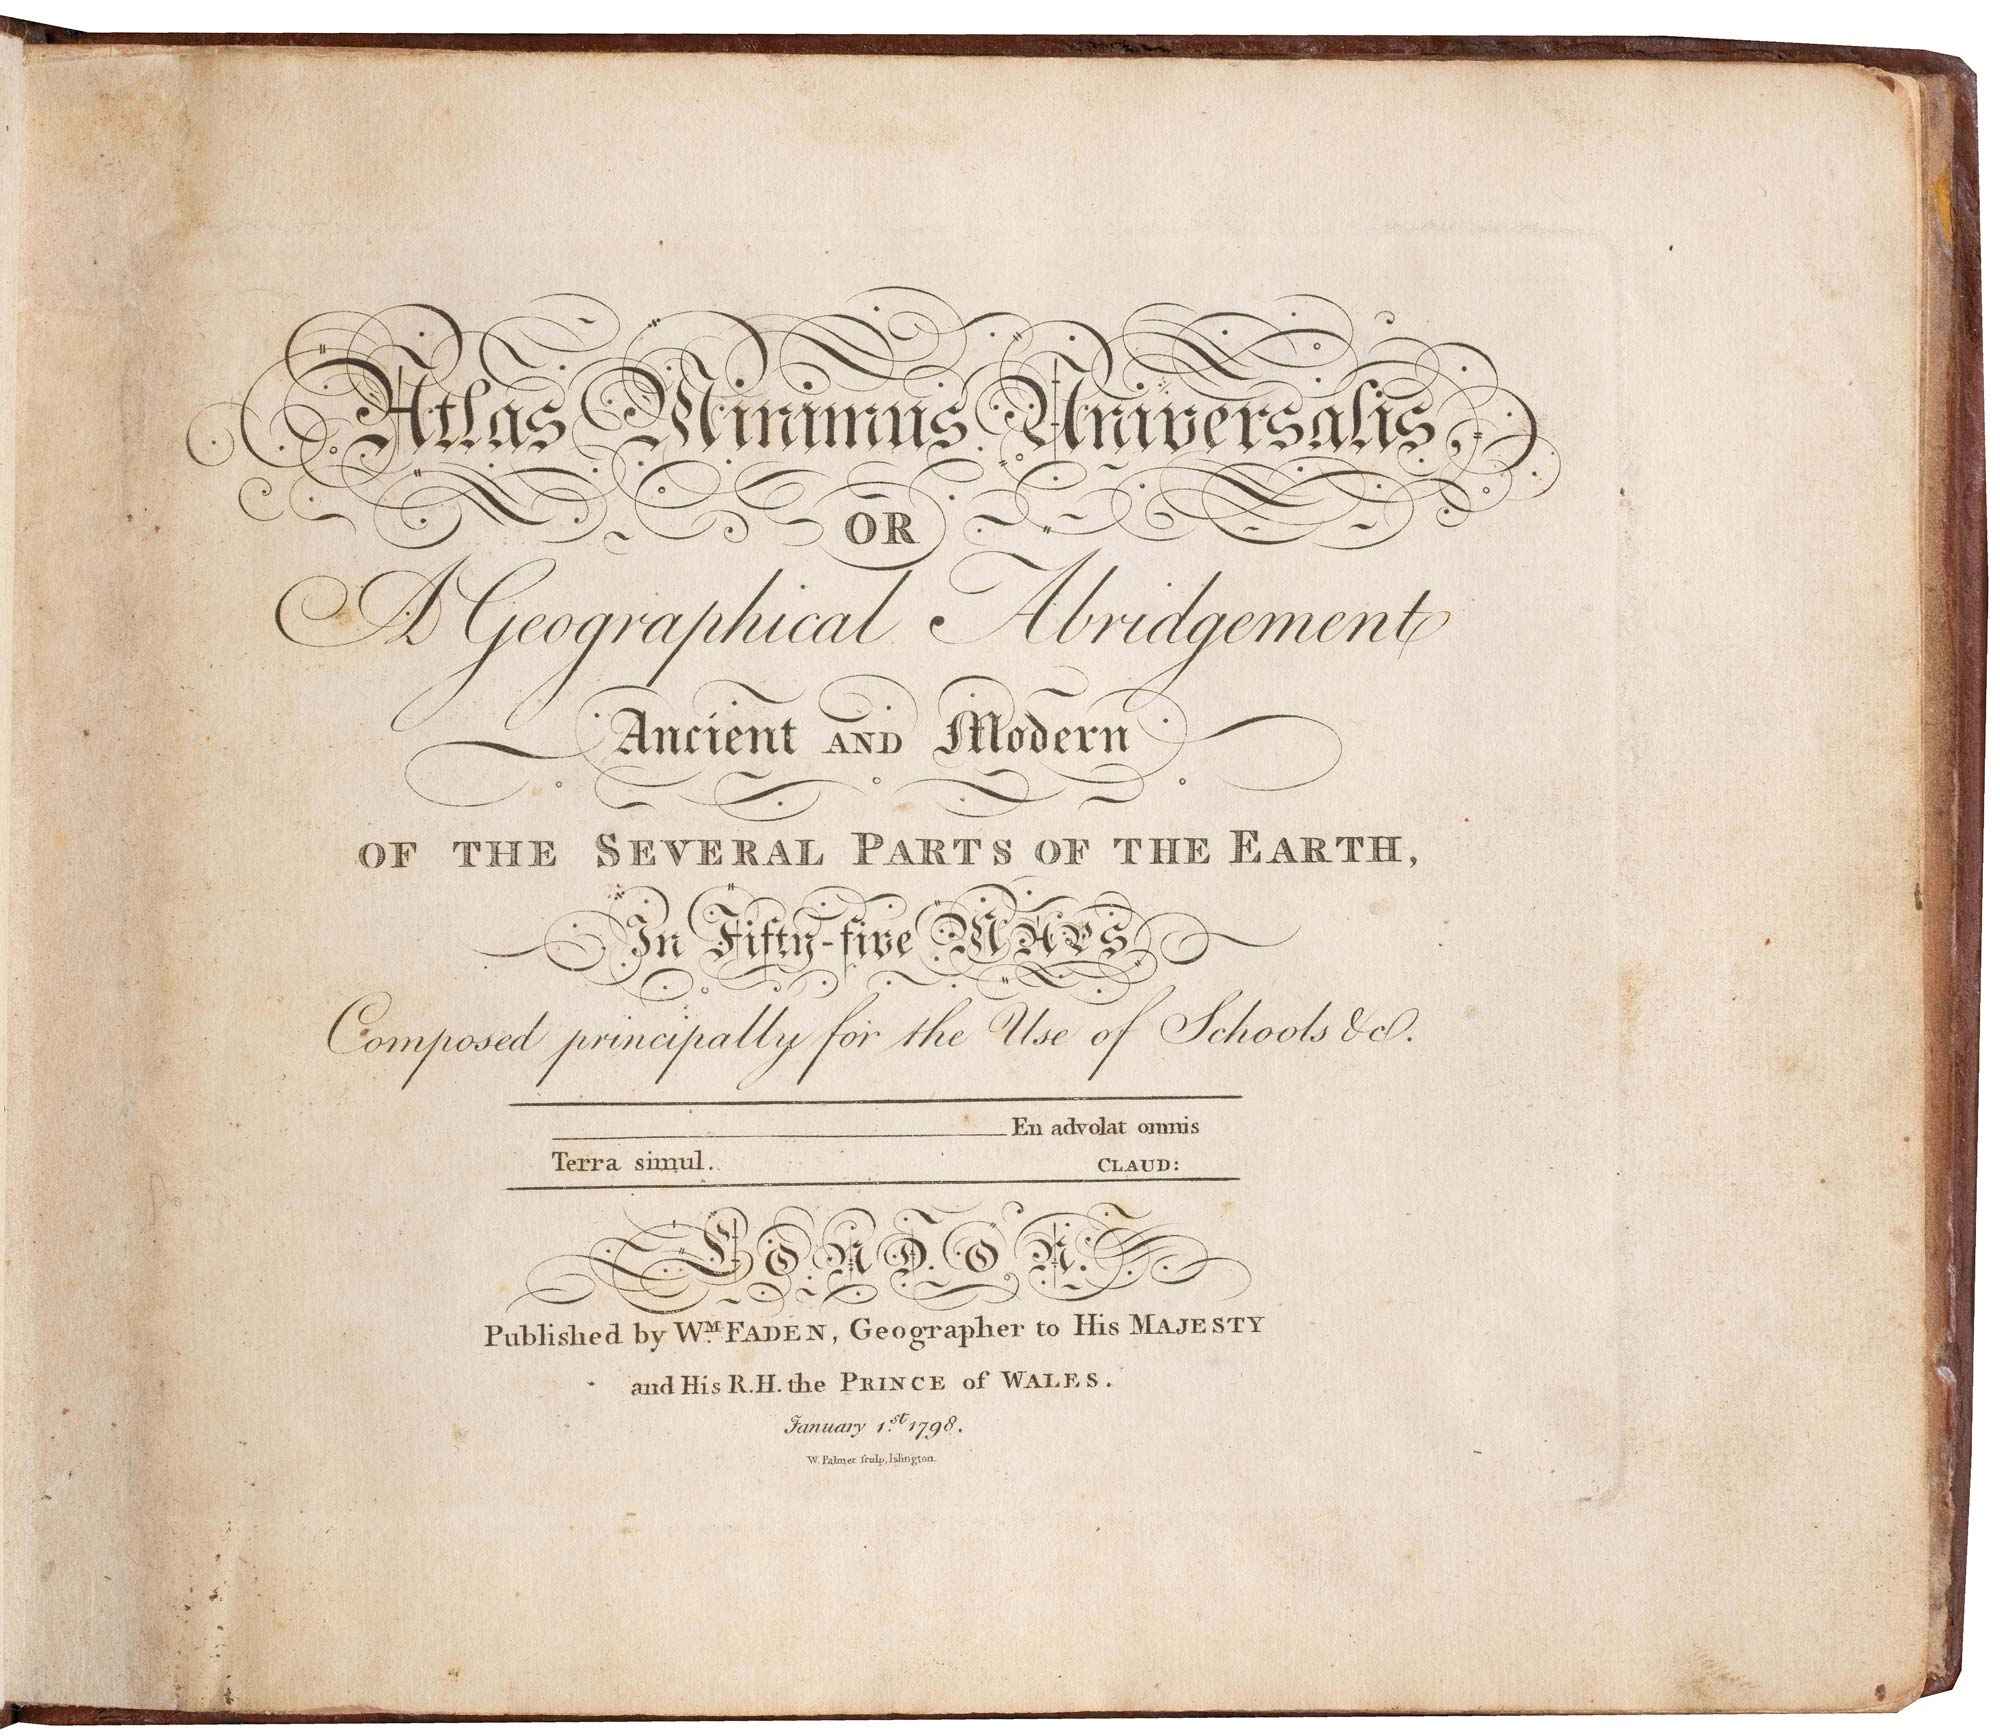 Atlas Minimus Universalis,
OR
A Geographical Abridgement
Ancient AND Modern
OF THE SEVERAL PARTS OF THE EARTH,
In Fifty-five MAPS
Composed principally for the Use of Schools &c.
En advolat omnis
Terra simul. CLAUD:
LONDON.
Published by Wm. FADEN, Geographer to His MAJESTY
and His R.H. the PRINCE of WALES.
January 1.st 1798.
W. Palmer sculp, Islington.